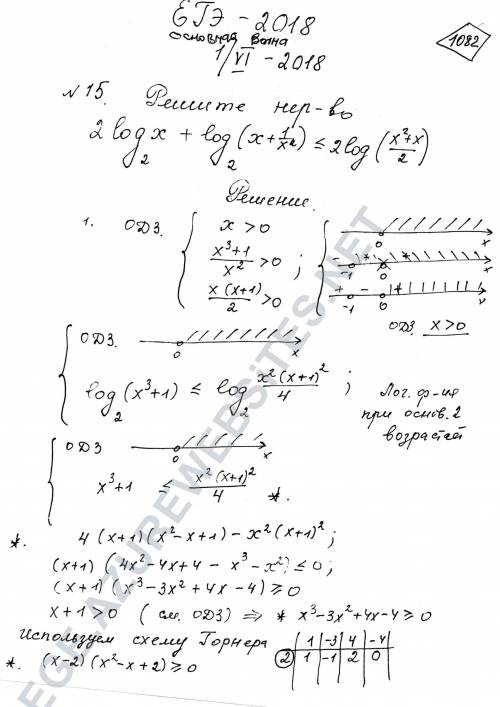 ЕГЭ - 2018
основная волна
1/VI - 2018
1082
№ 15. Решите нер-во
2 log₂ x + log₂ (x + 1/x²) ≤ 2 log₂ ((x²+x)/2)
Решение.
1. ОДЗ. { x > 0
(x³+1)/x² > 0 ;
x(x+1)/2 > 0
0 x
- + + -1 0 x
+ - + -1 0 x
ОДЗ. x > 0
{ ОДЗ. 0 x
log₂ (x³+1) ≤ log₂ x²(x+1)²/4 ;
Лог. ф-ия
при основ. 2
возрастает
{ ОДЗ 0 x
x³+1 ≤ x²(x+1)²/4 *.
*. 4(x+1)(x²-x+1) - x²(x+1)²;
(x+1)(4x²-4x+4 - x³-x²) ≤ 0;
(x+1)(x³-3x²+4x-4) ≥ 0
x+1>0 (см. ОДЗ) ⇒ * x³-3x²+4x-4 ≥ 0
Используем схему Горнера
1 | -3 | 4 | -4
2 | 1 | -1 | 2 | 0
*. (x-2)(x²-x+2) ≥ 0
EGE.AZUREWEBSITES.NET